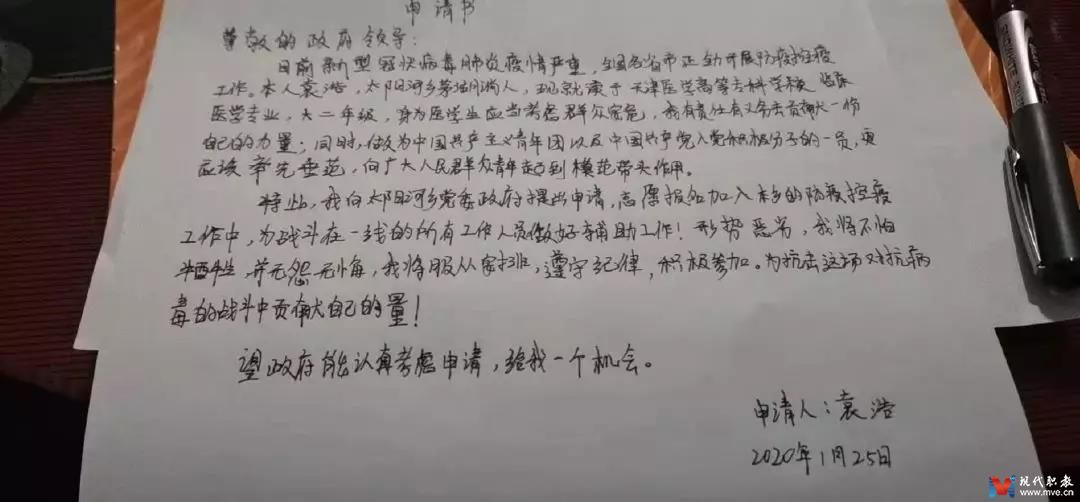 申请书
尊敬的政府领导：
目前新型冠状病毒肺炎疫情严重，全国各省市正全力开展防疫控疫
工作。本人袁浩，太阳河乡茅湖淌人，现就读于天津医学高等专科学校 临床
医学专业，大二年级，身为医学生应当考虑群众安危，我有责任有义务去贡献一份
自己的力量；同时，做为中国共产主义青年团以及中国共产党入党积极分子的一员，更
应该率先垂范，向广大人民群众青年起到模范带头作用。
特此，我向太阳河乡党委政府提出申请，志愿报名加入本乡的防疫控疫
工作中，为战斗在一线的所有工作人员做好辅助工作！形势恶劣，我将不怕
牺牲，并无怨无悔，我将服从安排，遵守纪律，积极参加。为抗击这场对抗病
毒的战斗中贡献自己的量！
望政府能认真考虑申请，给我一个机会。
申请人：袁浩
2020年1月25日
现代职教
www.mve.cn